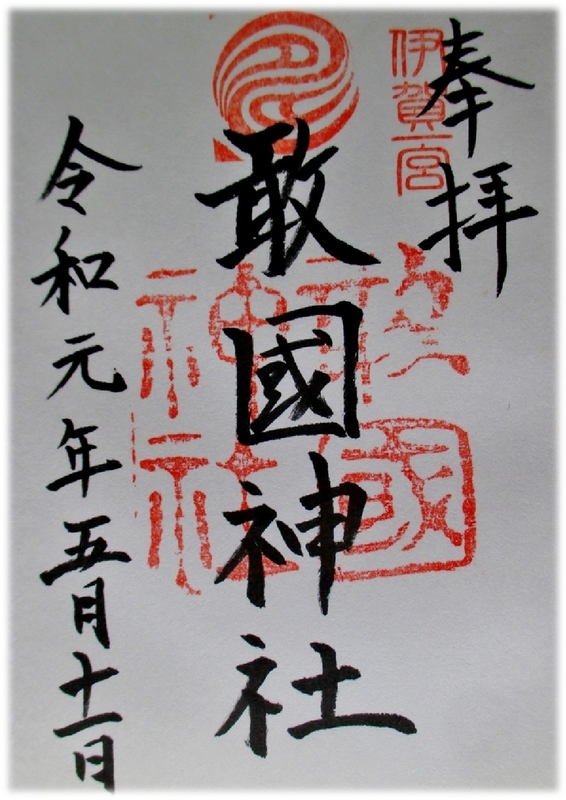 奉拝
伊賀一宮
敢國神社
敢國神社
令和元年五月十一日